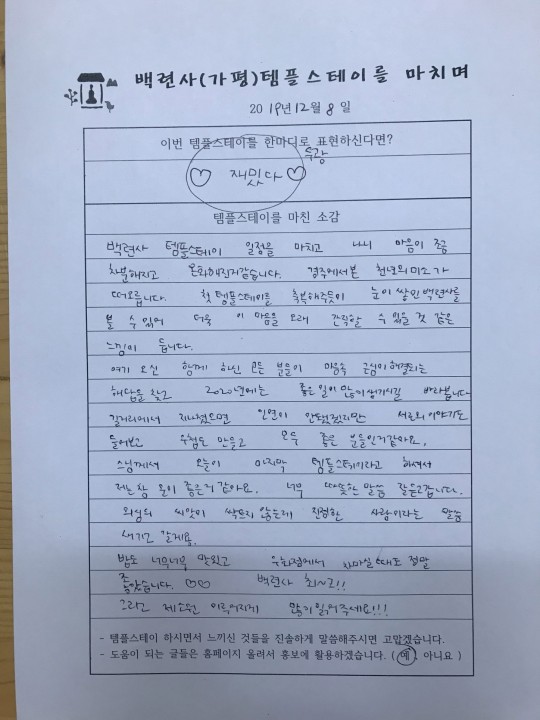 백련사(가평)템플스테이를 마치며
2019년 12월 8일
이번 템플스테이를 한마디로 표현하신다면?
재밌다
템플스테이를 마친 소감
백련사 템플스테이 일정을 마치고 나니 마음이 조금
차분해지고 온화해진거같습니다. 경주에서 본 천년의 미소가
떠오릅니다. 첫 템플스테이를 축복해주듯이 눈이 쌓인 백련사를
볼 수 있어 더욱 이 마음을 오래 간직할 수 있을 것 같은
느낌이 듭니다.
여기 오신 함께 하신 모든 분들이 마음속 근심이 해결되는
해답을 찾고 2020년에는 좋은 일이 많이 생기시길 바라봅니다
길거리에서 지나쳤으면 인연이 안됐겠지만 서로의 이야기도
들어보고 추억도 만들고 모두 좋은 분들인거같아요.
스님께서 오늘이 마지막 템플스테이라고 하셔서
저는 참 운이 좋은거 같아요. 너무 따뜻한 말씀 잘듣고갑니다.
의심의 씨앗이 싹트지 않는게 진정한 사랑이라는 말씀
새기고 갈게요.
밥도 너무너무 맛있고 우화정에서 차마실때도 정말
좋았습니다. ♡♡ 백련사 최~고!!
그리고 제소원 이루어지게 많이 읽어주세요!!!
- 템플스테이 하시면서 느끼신 것들을 진솔하게 말씀해주시면 고맙겠습니다.
- 도움이 되는 글들은 홈페이지 올려서 홍보에 활용하겠습니다. ( 예, 아니요 )